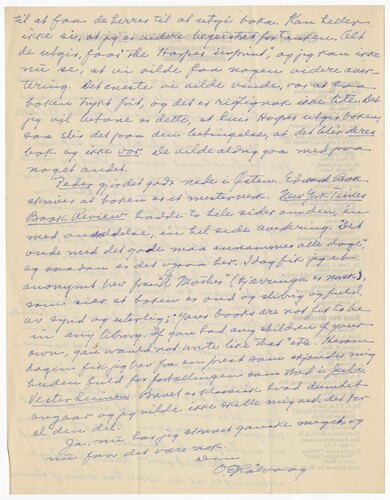 til at faa de herrer til at utgi boka. Kan heller
ikke se, at jeg er videre begeistret for tanken. Alt
de utgir, faar "the Harper imprint", og jeg kan ikke
nu se, at vi vilde faa nogen videre aver-
tering. Det eneste vi vilde vinde, var at faa
boken trykt frit, og det er rigtignok ikke lite. Det
jeg vil befare er dette, at hvis Harper utgir boken,
saa blir det paa den betingelse, at det blir deres
bok og ikke vor. De vilde aldrig gaa med paa
noget andet.
Peder gjør det godt nede i Østen. Edward Bok
skriver at boken er et mesterverk. New York Times
Book Review hadde to hele sider om den, en
med anmeldelse, en hel side avertering. "Det
onde med det gode maa annammes alle dage",
og saadan er det ogsaa her. Idag fik jeg et
anonymt brev fra "A Mother" (kjerringa er norsk),
som sier at boken er ond og slibrig og fuld
av synd og uterlig; "Your books are not fit to be
in any library. If you had any children of your
own, you would not write like that" etc. Herom
dagen fik jeg brev fra en prest som skjendte mig
huden fuld for fortællingen som stod i Jul i
Vesterheimen. Brevet er klassisk hvad dumhet
angaar og jeg vilde ikke skille mig ved det for
al den del.
Ja, nu har jeg skrevet ganske meget, og
nu faar det være nok.
Din
O E Rølvaag